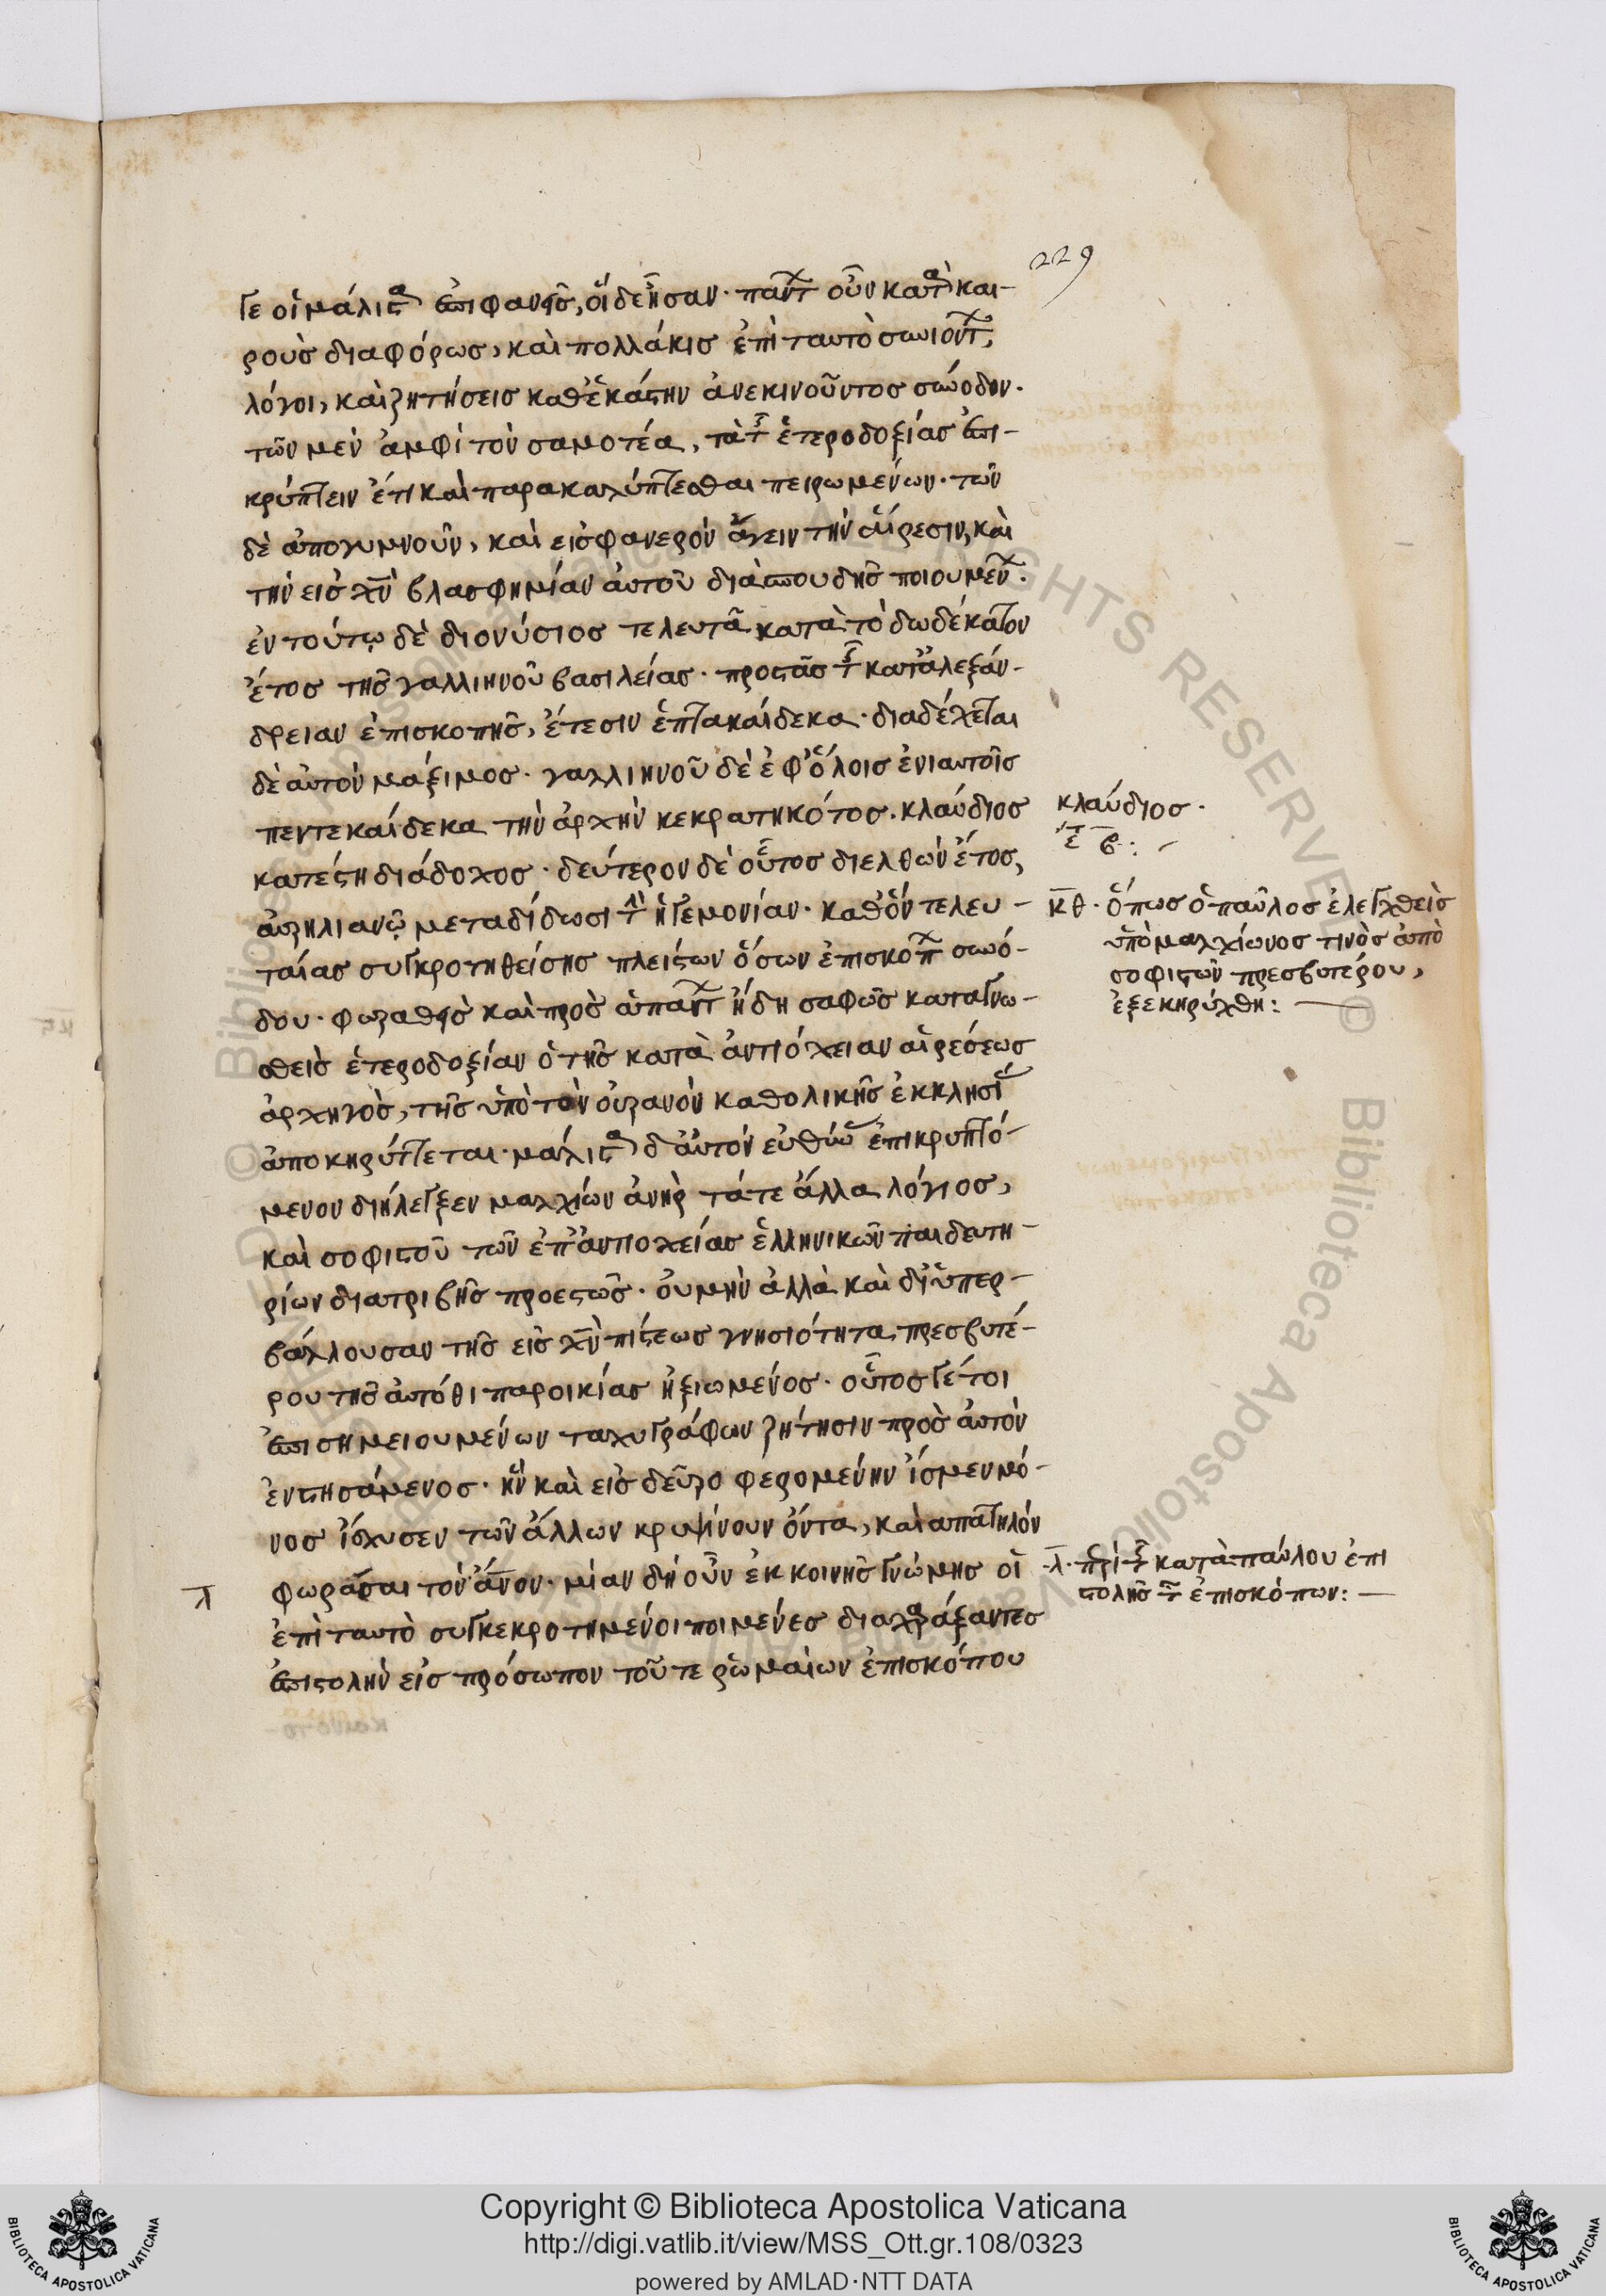 229
γε οἱ μάλιστα ἐπιφανεῖς, οἵδε ἦσαν· πάντων οὖν κατὰ και-
ροὺς διαφόρως, καὶ πολλάκις ἐπὶ ταυτὸ συνιόντων,
λόγοι, καὶ ζητήσεις καθ' ἑκάστην ἀνεκινοῦντο σύνοδον·
τῶν μὲν ἀμφὶ τὸν σαμοτέα, τὰ τῆς ἑτεροδοξίας ἐπι-
κρύπτειν ἔτι καὶ παρακαλύπτεσθαι πειρωμένων· τῶν
δὲ ἀπογυμνοῦν, καὶ εἰς φανερὸν ἄγειν τὴν αἵρεσιν, καὶ
τὴν εἰς χν βλασφημίαν αὐτοῦ διὰ σπουδῆς ποιουμένων·
ἐν τούτῳ δὲ διονύσιος τελευτᾶ κατὰ τὸ δωδέκατον
ἔτος τῆς γαλλιηνοῦ βασιλείας· προστὰς τῆς κατ' ἀλεξάν-
δρειαν ἐπισκοπῆς, ἔτεσιν ἑπτακαίδεκα· διαδέχεται
δὲ αὐτὸν μάξιμος· γαλλιηνοῦ δὲ ἐφ' ὅλοις ἐνιαυτοῖς
πεντεκαίδεκα τὴν ἀρχὴν κεκρατηκότος· κλαύδιος
κατέστη διάδοχος· δεύτερον δὲ οὗτος διελθὼν ἔτος,
αὐρηλιανῷ μεταδίδωσι τὴν ἡγεμονίαν· καθ' ὃν τελευ-
ταίας συγκροτηθείσης πλείστων ὅσων ἐπισκόπων συνό-
δου· φωραθεὶς καὶ πρὸς ἁπάντων ἤδη σαφῶς καταγνω-
σθεὶς ἑτεροδοξίαν ὁ τῆς κατὰ ἀντιόχειαν αἱρέσεως
ἀρχηγὸς, τῆς ὑπὸ τὸν οὐρανὸν καθολικῆς ἐκκλησίας
ἀποκηρύττεται· μάλιστα δ' αὐτὸν εὐθύνας ἐπικρυπτό-
μενον διήλεγξεν μαλχίων ἀνὴρ τά τε ἄλλα λόγιος,
καὶ σοφιστοῦ τῶν ἐπ' ἀντιοχείας ἑλληνικῶν παιδευτη-
ρίων διατριβῆς προεστῶς· οὐ μὴν ἀλλὰ καὶ δι' ὑπερ-
βάλλουσαν τῆς εἰς χν πίστεως γνησιότητα πρεσβυτέ-
ρου τῆς αὐτόθι παροικίας ἠξιωμένος· οὗτος γέ τοι
ἐπισημειουμένων ταχυγράφων ζήτησιν πρὸς αὐτὸν
ἐνστησάμενος· ἣν καὶ εἰς δεῦρο φερομένην ἴσμεν μό-
νος ἴσχυσεν τῶν ἄλλων κρυψίνουν ὄντα, καὶ ἀπατηλὸν
φωρᾶσαι τὸν ἄνον· μίαν δὴ οὖν ἐκ κοινῆς γνώμης οἱ
ἐπὶ ταυτὸ συγκεκροτημένοι ποιμένες διαχαράξαντες
ἐπιστολὴν εἰς πρόσωπον τοῦ τε ῥωμαίων ἐπισκόπου
κλαύδιος·
ἔτ β:
κθ· ὅπως ὁ παῦλος ἐλεγχθεὶς
ὑπὸ μαλχίωνος τινὸς ἀπὸ
σοφιστῶν πρεσβυτέρου,
ἐξεκηρύχθη:
λ· περὶ τῆς κατὰ παύλου ἐπι
στολῆς τῶν ἐπισκόπων:
λ
Copyright © Biblioteca Apostolica Vaticana
http://digi.vatlib.it/view/MSS_Ott.gr.108/0323
powered by AMLAD·NTT DATA
BIBLIOTECA APOSTOLICA VATICANA
BIBLIOTECA APOSTOLICA VATICANA